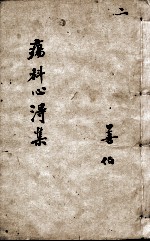 二
善伯
瘍科心得集